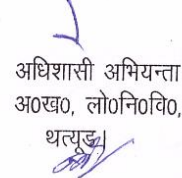 अधिशासी अभियन्ता
अ०ख०, लो०नि०वि०,
थत्यूड़।